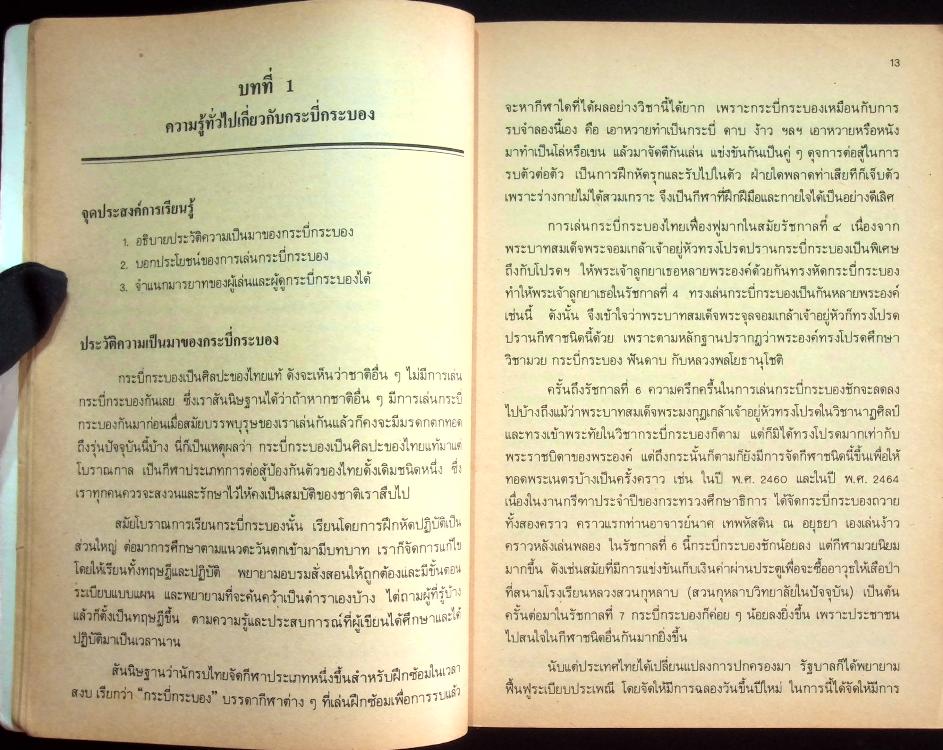 บทที่ 1
ความรู้ทั่วไปเกี่ยวกับกระบี่กระบอง
จุดประสงค์การเรียนรู้
1. อธิบายประวัติความเป็นมาของกระบี่กระบอง
2. บอกประโยชน์ของการเล่นกระบี่กระบอง
3. จำแนกมารยาทของผู้เล่นและผู้ดูกระบี่กระบองได้
ประวัติความเป็นมาของกระบี่กระบอง
กระบี่กระบองเป็นศิลปะของไทยแท้ ดังจะเห็นว่าชาติอื่น ๆ ไม่มีการเล่น
กระบี่กระบองกันเลย ซึ่งเราสันนิษฐานได้ว่าถ้าหากชาติอื่น ๆ มีการเล่นกระบี่
กระบองกันมาก่อนเมื่อสมัยบรรพบุรุษของเราเล่นกันแล้วก็คงจะมีมรดกตกทอด
ถึงรุ่นปัจจุบันนี้บ้าง นี่ก็เป็นเหตุผลว่า กระบี่กระบองเป็นศิลปะของไทยแท้มาแต่
โบราณกาล เป็นกีฬาประเภทการต่อสู้ป้องกันตัวของไทยดั้งเดิมชนิดหนึ่ง ซึ่ง
เราทุกคนควรจะสงวนและรักษาไว้ให้คงเป็นสมบัติของชาติเราสืบไป
สมัยโบราณการเรียนกระบี่กระบองนั้น เรียนโดยการฝึกหัดปฏิบัติเป็น
ส่วนใหญ่ ต่อมาการศึกษาตามแนวตะวันตกเข้ามามีบทบาท เราก็จัดการแก้ไข
โดยให้เรียนทั้งทฤษฎีและปฏิบัติ พยายามอบรมสั่งสอนให้ถูกต้องและมีขั้นตอน
ระเบียบแบบแผน และพยายามที่จะค้นคว้าเป็นตำราเองบ้าง ไต่ถามผู้ที่รู้บ้าง
แล้วก็ตั้งเป็นทฤษฎีขึ้น ตามความรู้และประสบการณ์ที่ผู้เขียนได้ศึกษาและได้
ปฏิบัติมาเป็นเวลานาน
สันนิษฐานว่านักรบไทยจัดกีฬาประเภทหนึ่งขึ้นสำหรับฝึกซ้อมในเวลา
สงบ เรียกว่า "กระบี่กระบอง" บรรดากีฬาต่าง ๆ ที่เล่นฝึกซ้อมเพื่อการรบแล้ว
13
จะหากีฬาใดที่ได้ผลอย่างวิชานี้ได้ยาก เพราะกระบี่กระบองเหมือนกับการ
รบจำลองนี้เอง คือ เอาหวายทำเป็นกระบี่ ดาบ ง้าว ฯลฯ เอาหวายหรือหนัง
มาทำเป็นโล่หรือเขน แล้วมาจัดตีกันเล่น แข่งขันกันเป็นคู่ ๆ ดุจการต่อสู้ในการ
รบตัวต่อตัว เป็นการฝึกหัดรุกและรับไปในตัว ฝ่ายใดพลาดท่าเสียทีก็เจ็บตัว
เพราะร่างกายไม่ได้สวมเกราะ จึงเป็นกีฬาที่ฝึกฝีมือและกายใจได้เป็นอย่างดีเลิศ
การเล่นกระบี่กระบองไทยเฟื่องฟูมากในสมัยรัชกาลที่ ๔ เนื่องจาก
พระบาทสมเด็จพระจอมเกล้าเจ้าอยู่หัวทรงโปรดปรานกระบี่กระบองเป็นพิเศษ
ถึงกับโปรดฯ ให้พระเจ้าลูกยาเธอหลายพระองค์ด้วยกันทรงหัดกระบี่กระบอง
ทำให้พระเจ้าลูกยาเธอในรัชกาลที่ 4 ทรงเล่นกระบี่กระบองเป็นกันหลายพระองค์
เช่นนี้ ดังนั้น จึงเข้าใจว่าพระบาทสมเด็จพระจุลจอมเกล้าเจ้าอยู่หัวก็ทรงโปรด
ปรานกีฬาชนิดนี้ด้วย เพราะตามหลักฐานปรากฏว่าพระองค์ทรงโปรดศึกษา
วิชามวย กระบี่กระบอง ฟันดาบ กับหลวงพลโยธานุโชติ
ครั้นถึงรัชกาลที่ 6 ความครึกครื้นในการเล่นกระบี่กระบองชักจะลดลง
ไปบ้างถึงแม้ว่าพระบาทสมเด็จพระมงกุฎเกล้าเจ้าอยู่หัวทรงโปรดในวิชานาฏศิลป์
และทรงเข้าพระทัยในวิชากระบี่กระบองก็ตาม แต่ก็มิได้ทรงโปรดมากเท่ากับ
พระราชบิดาของพระองค์ แต่ถึงกระนั้นก็ตามก็ยังมีการจัดกีฬาชนิดนี้ขึ้นเพื่อให้
ทอดพระเนตรบ้างเป็นครั้งคราว เช่น ในปี พ.ศ. 2460 และในปี พ.ศ. 2464
เนื่องในงานกรีฑาประจำปีของกระทรวงศึกษาธิการ ได้จัดกระบี่กระบองถวาย
ทั้งสองคราว คราวแรกท่านอาจารย์นาค เทพหัสดิน ณ อยุธยา เองเล่นง้าว
คราวหลังเล่นพลอง ในรัชกาลที่ 6 นี้กระบี่กระบองชักน้อยลง แต่กีฬามวยนิยม
มากขึ้น ดังเช่นสมัยที่มีการแข่งขันเก็บเงินค่าผ่านประตูเพื่อจะซื้ออาวุธให้เสือป่า
ที่สนามโรงเรียนหลวงสวนกุหลาบ (สวนกุหลาบวิทยาลัยในปัจจุบัน) เป็นต้น
ครั้นต่อมาในรัชกาลที่ 7 กระบี่กระบองก็ค่อย ๆ น้อยลงยิ่งขึ้น เพราะประชาชน
ไปสนใจในกีฬาชนิดอื่นกันมากยิ่งขึ้น
นับแต่ประเทศไทยได้เปลี่ยนแปลงการปกครองมา รัฐบาลก็ได้พยายาม
ฟื้นฟูระเบียบประเพณี โดยจัดให้มีการฉลองวันขึ้นปีใหม่ ในการนี้ได้จัดให้มีการ